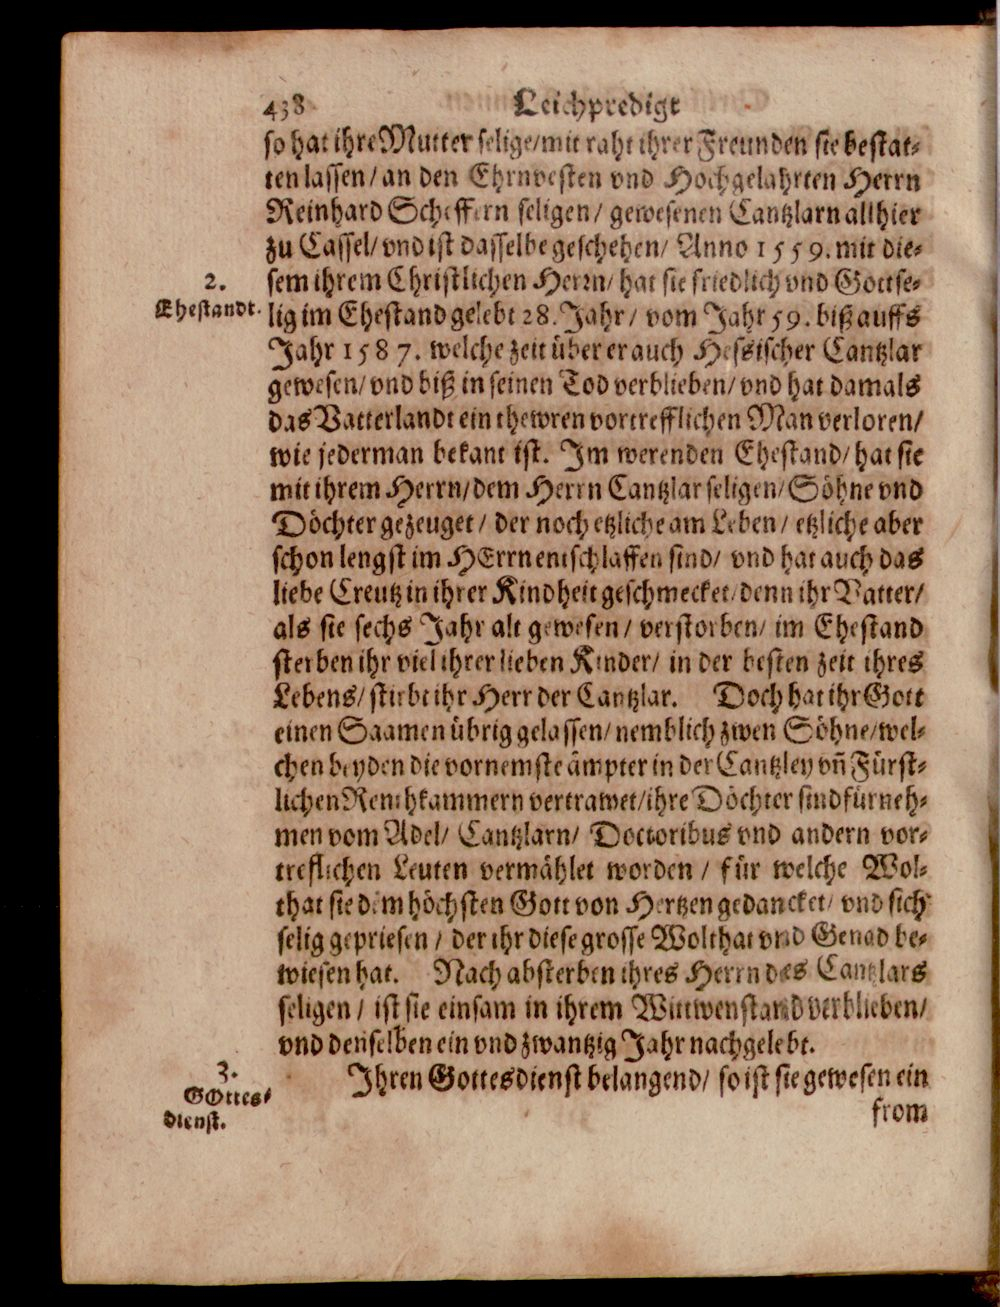 438 Leichpredigt
so hat ihre Mutter selige/ mit raht ihrer Freunden sie bestat-
ten lassen/ an den Ehrnvesten vnd Hochgelahrten Herrn
Reinhard Scheffern seligen/ gewesenen Cantzlarn allhier
zu Cassel/ vnd ist dasselbe geschehen/ Anno 1559. mit die-
2.
sem ihrem Christlichen Herrn/ hat sie friedlich vnd Gottse-
Ehestandt.
lig im Ehestand gelebt 28. Jahr/ vom Jahr 59. biß auffs
Jahr 1587. welche zeit über er auch Hessischer Cantzlar
gewesen/ vnd biß in seinen Tod verblieben/ vnd hat damals
das Vatterlandt ein thewren vortrefflichen Man verloren/
wie jederman bekant ist. Im werenden Ehestand/ hat sie
mit ihrem Herrn/ dem Herrn Cantzlar seligen/ Söhne vnd
Döchter gezeuget/ der noch etzliche am Leben/ etzliche aber
schon lengst im HErrn entschlaffen sind/ vnd hat auch das
liebe Creutz in ihrer Kindheit geschmecket/ denn ihr Vatter/
als sie sechs Jahr alt gewesen/ verstorben/ im Ehestand
sterben ihr viel ihrer lieben Kinder/ in der besten zeit ihres
Lebens/ stirbt ihr Herr der Cantzlar. Doch hat ihr Gott
einen Saamen übrig gelassen/ nemblich zwen Söhne/ wel-
chen beyden die vornemste ämpter in der Cantzley vñ Fürst-
lichen Renthkammern vertrawet/ ihre Döchter sind fürneh-
men vom Adel/ Cantzlarn/ Doctoribus vnd andern vor-
treflichen Leuten vermählet worden/ für welche Wol-
that sie dem höchsten Gott von Hertzen gedancket/ vnd sich
selig gepriesen/ der ihr diese grosse Wolthat vnd Genad be-
wiesen hat. Nach absterben ihres Herrn des Cantzlars
seligen/ ist sie einsam in ihrem Wittwenstand verblieben/
vnd denselben ein vnd zwantzig Jahr nachgelebt.
3.
GOttes-
dienst.
Ihren Gottesdienst belangend/ so ist sie gewesen ein
from